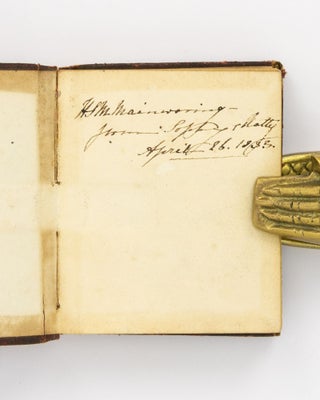 H S M Mainwaring
from Sophy & Matty
April 26. 1883.